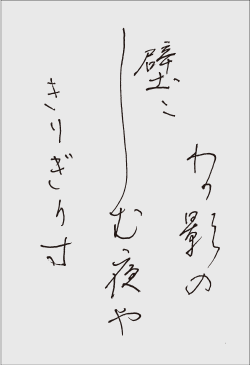 わか影の
壁ニ
しむ夜や
きりぎりす